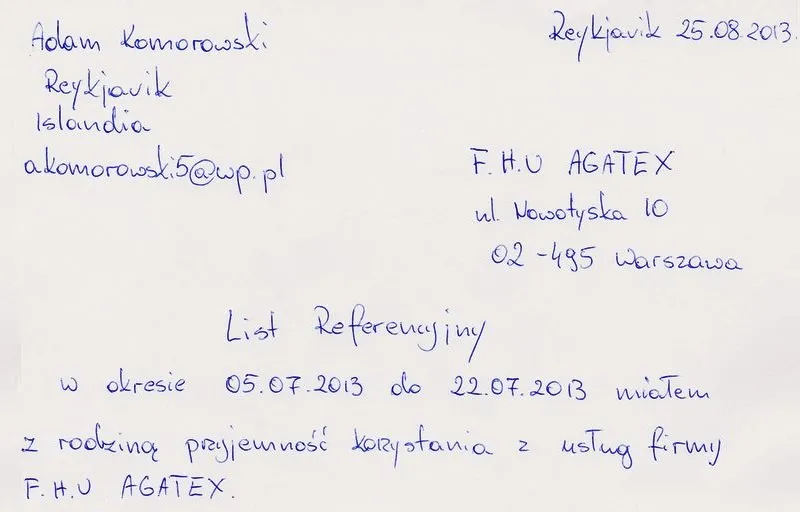 Adam Komorowski
Reykjavik 25.08.2013.
Reykjavik
Islandia
a.komorowski5@wp.pl
F.H.U AGATEX
ul. Nowotyska 10
02-495 Warszawa
List Referencyjny
w okresie 05.07.2013 do 22.07.2013 miałem
z rodziną przyjemność korzystania z usług firmy
F.H.U AGATEX.